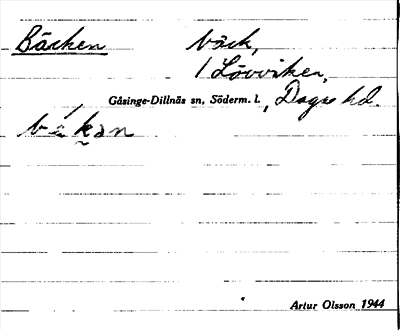 Bäcken bäck,
i Lövviken,
Gåsinge-Dillnäs sn, Söderm. l., Daga hd.
bäkan
Artur Olsson 1944